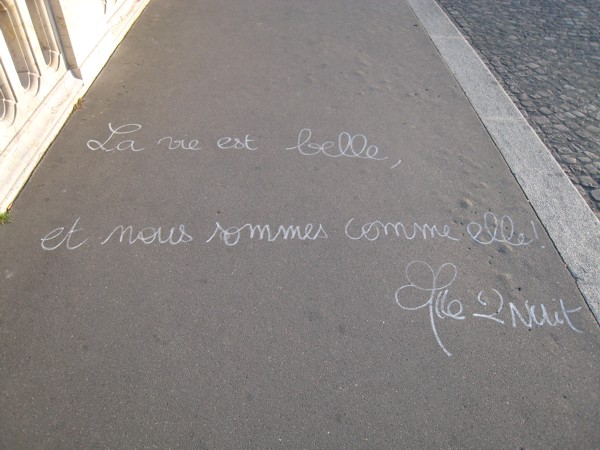 La vie est belle,
et nous sommes comme elle!
Elle 2 Nuit